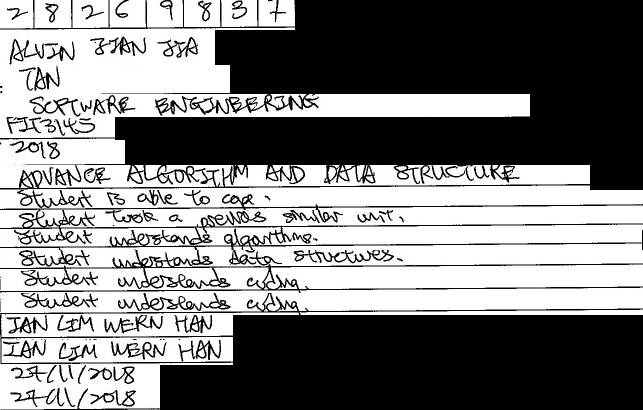 2 8 2 6 9 8 3 7
ALVIN JIAN JIA
TAN
SOFTWARE ENGINEERING
FIT3145
2018
ADVANCE ALGORITHM AND DATA STRUCTURE
Student is able to cope.
Student took a previous similar unit.
Student understands algorithms.
Student understands data structures.
Student understands coding.
Student understands coding.
IAN LIM WERN HAN
IAN LIM WERN HAN
27/11/2018
27/11/2018